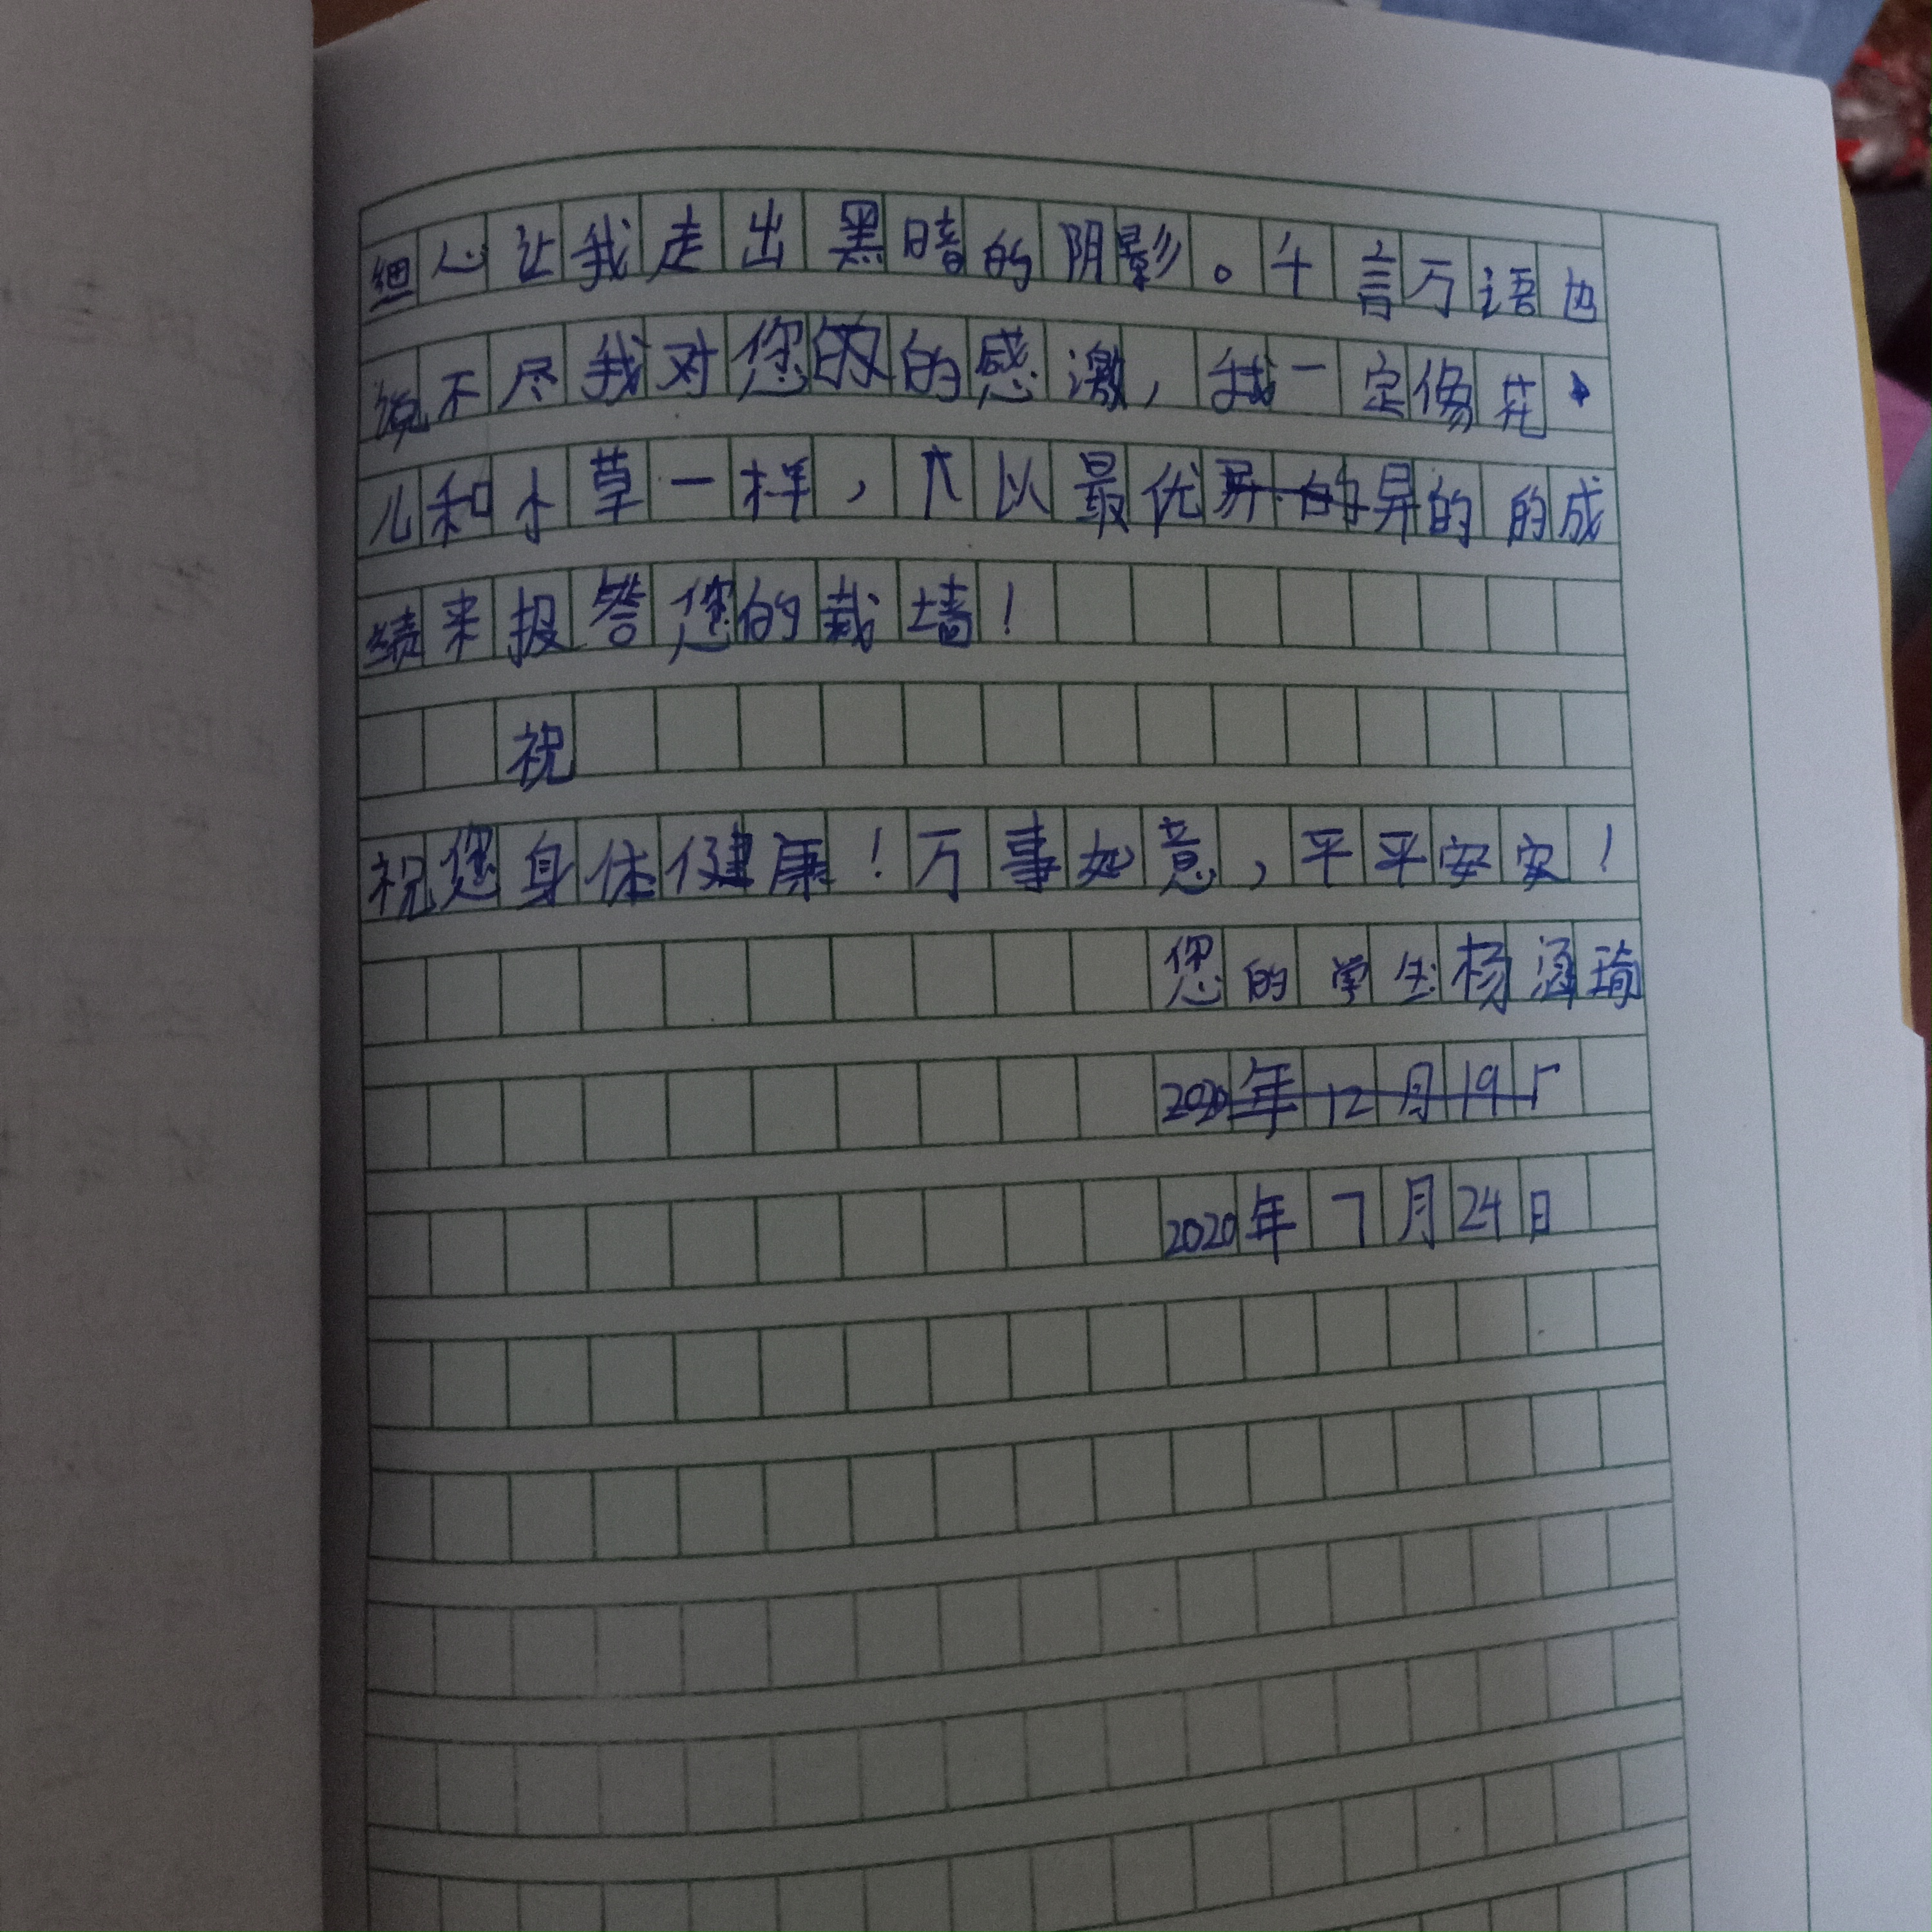 细心让我走出黑暗的阴影。千言万语也
说不尽我对您的的感激,我一定像花
儿和小草一样,以最优异的的成
绩来报答您的栽墙!
祝
祝您身体健康!万事如意,平平安安!
您的学生杨涵琦
2020年12月19
2020年7月24日